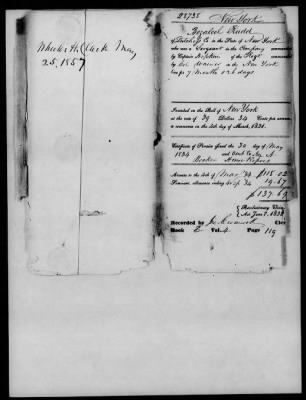 Wheeler H. Clark May
25. 1857
28735
New York
Bezaleel Rudd
of Dutchess Co in the State of New York
who was a Sergeant in the Company commanded
by Captain of the Regt commanded
by Col in the New York
for 7 Months & 26 days
Inscribed on the Roll of New York
at the rate of 39 Dollars 34 Cents per annum,
to commence on the 4th day of March, 1831.
Certificate of Pension issued the 30 day of May
1834 and sent to
Hon. House Reps
Arrears to the 4th of March 34 $118.02
Semi-anl. allowance ending 4 Sep 34 19.67
$137.69
Revolutionary Claim
Act June 7, 1832
Recorded by Clerk
Book E Vol. 4 Page 119